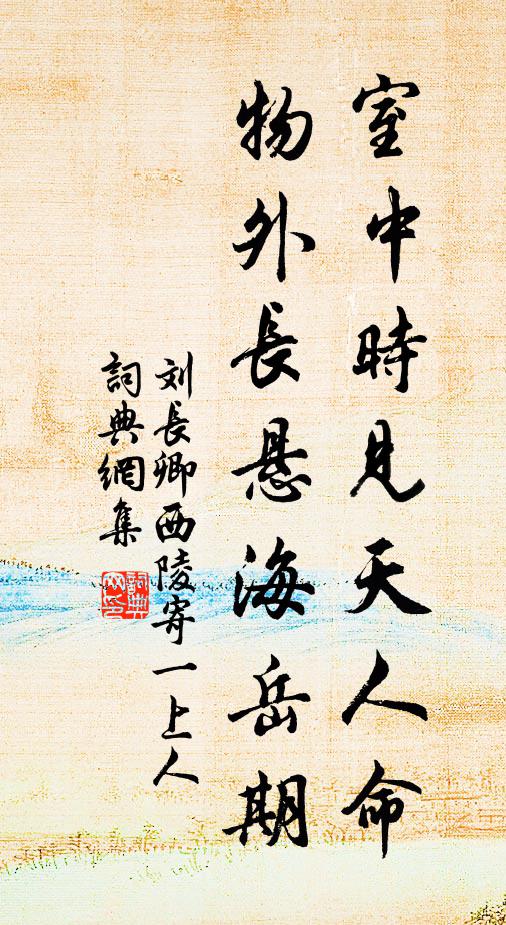 室中時見天人命
物外長悬海岳期
刘長卿西陵寄一上人
詞典網集